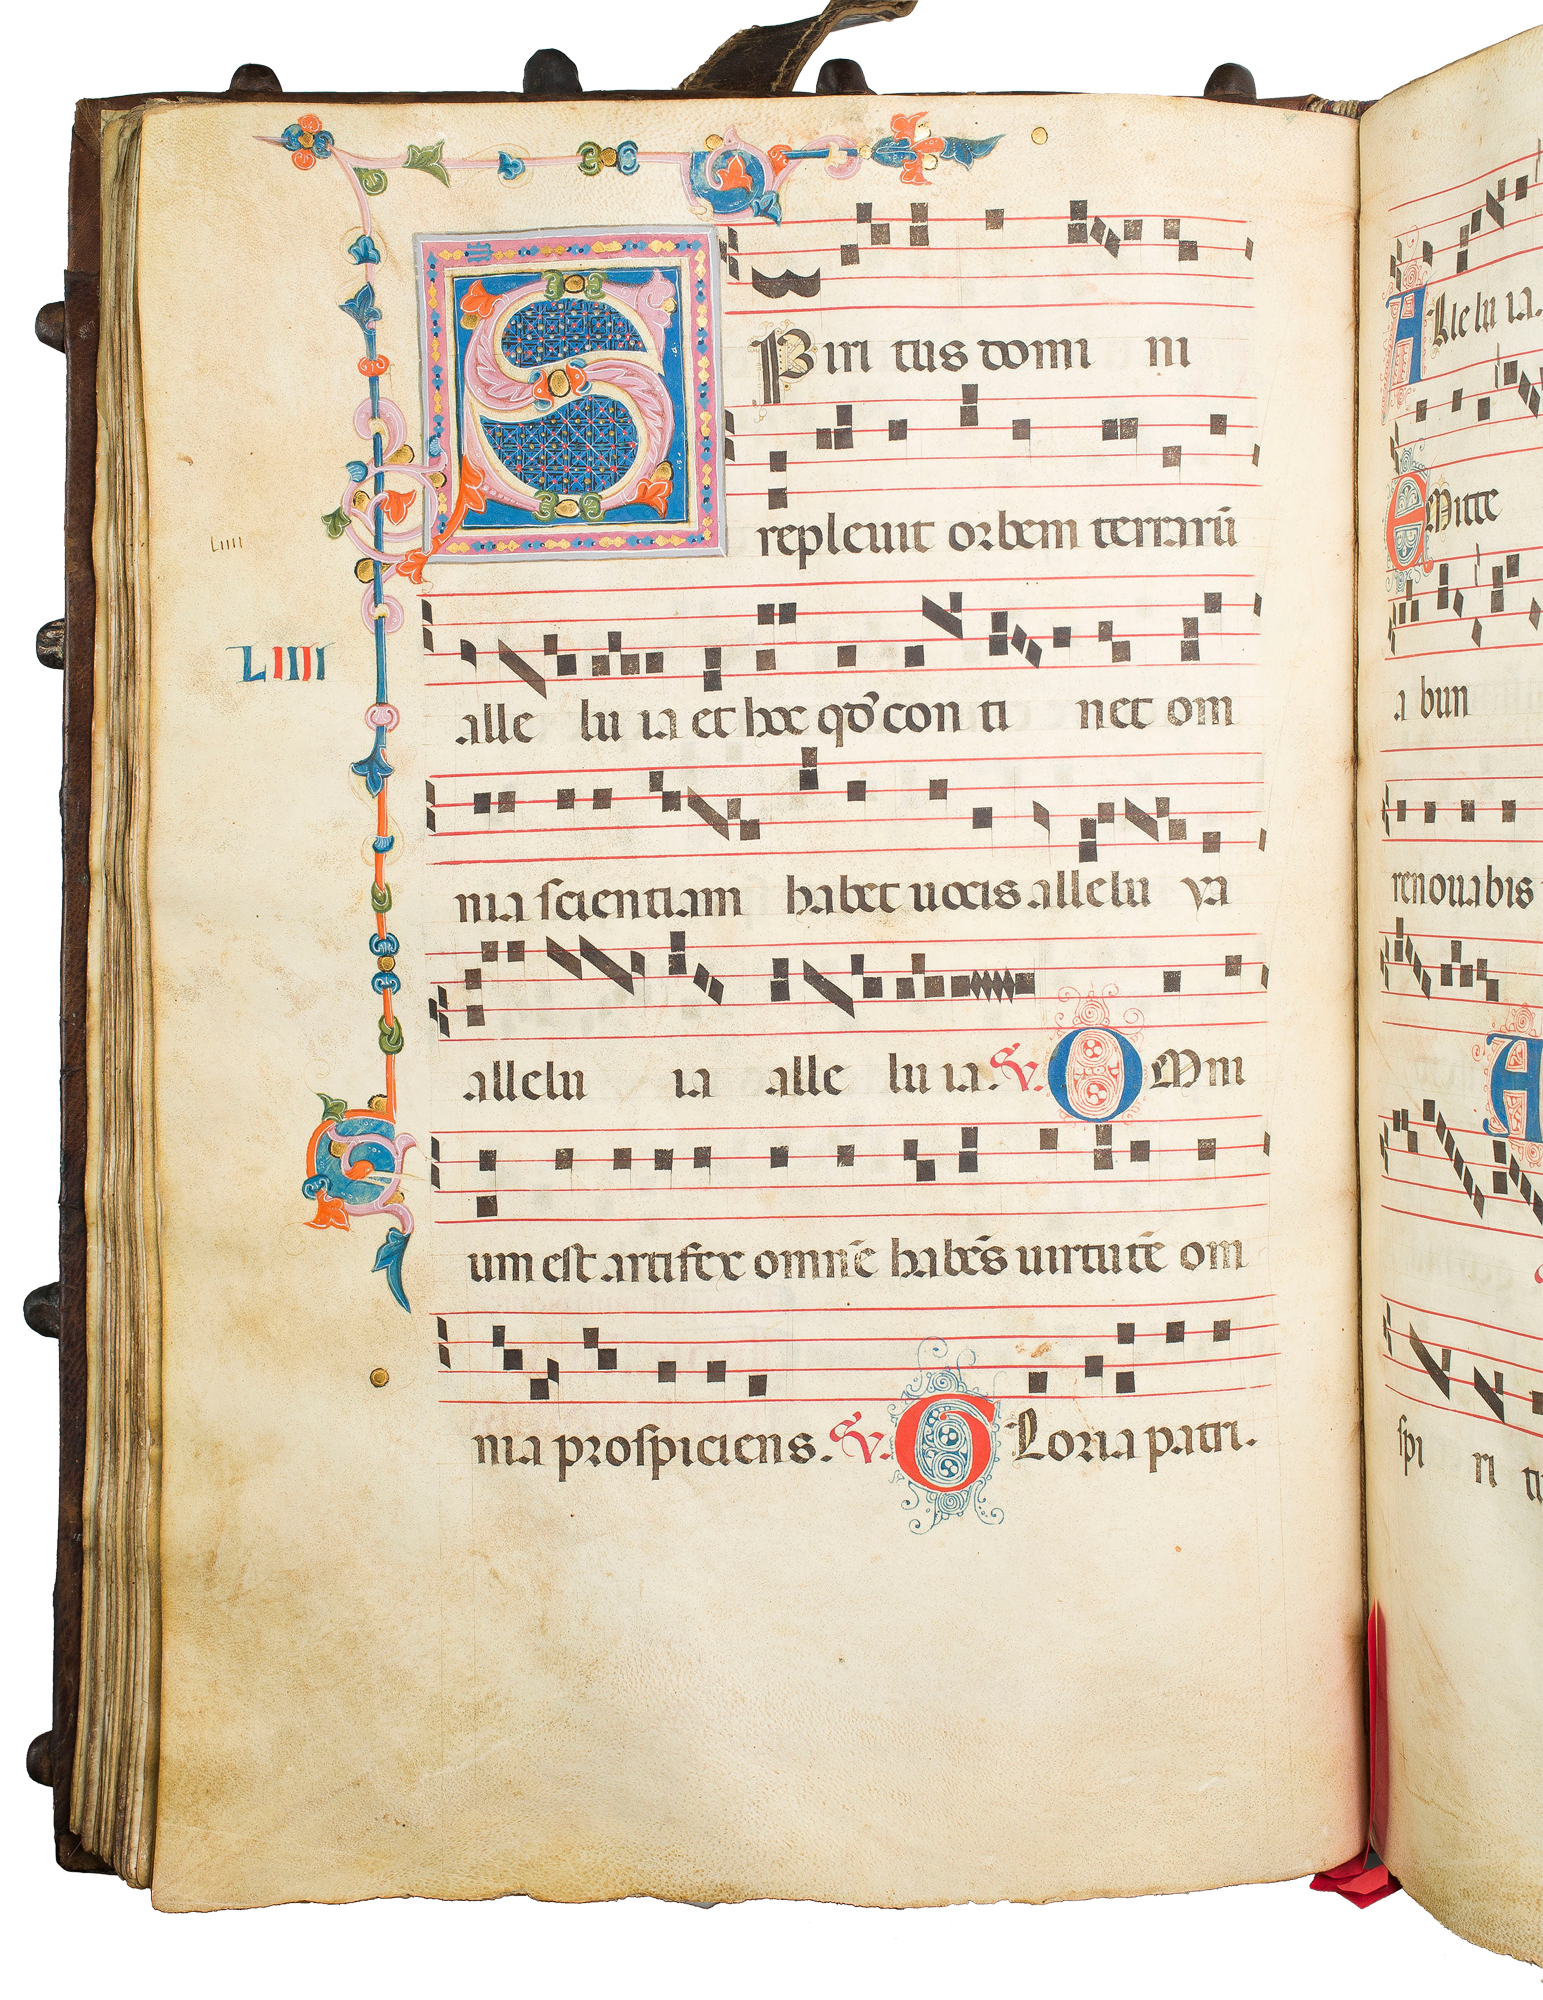 SPiri tus domi ni
repleuit orbem terrarū
Liiii
LIIII
alle lu ia et hoc qd̓ con ti net om
nia scientiam habet uocis allelu ya
allelu ia alle lu ia. V. OMni
um est artifex omnē habēs uirtutē om
nia prospiciens. V. GLoria patri.
ALle lu ia.
EMitte
a bun
renouabis
A
spi ri tu